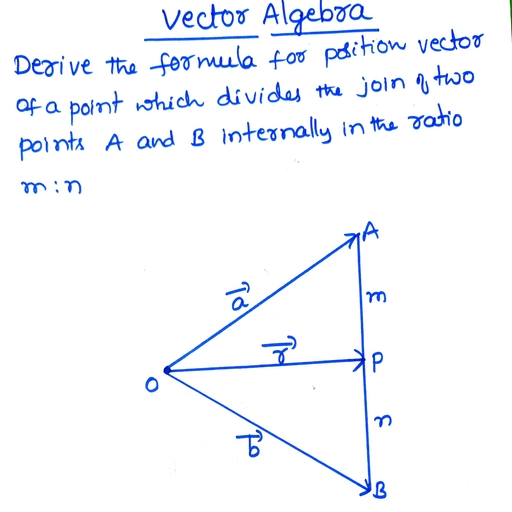 Vector Algebra
Derive the formula for position vector
of a point which divides the join of two
points A and B internally in the ratio
m:n
A
a
m
r
P
O
n
b
B